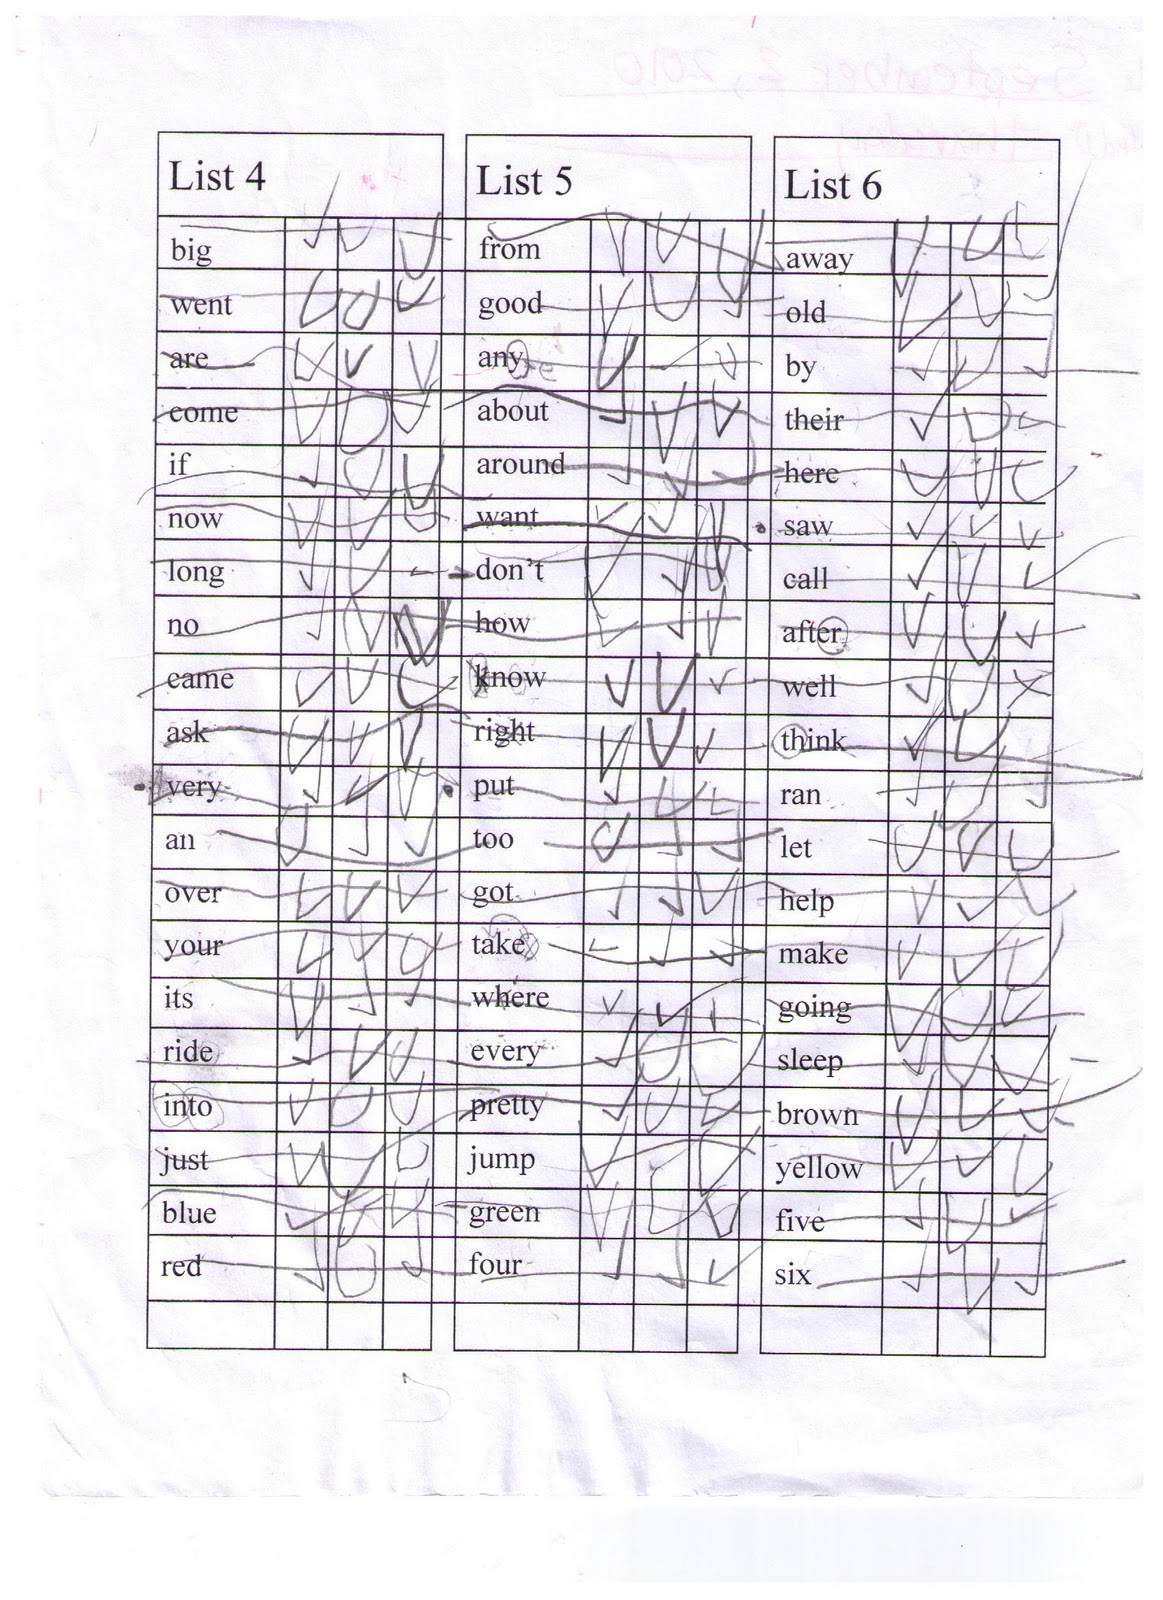 September 2, 2010
Thursday
List 4
big
went
are
come
if
now
long
no
came
ask
very
an
over
your
its
ride
into
just
blue
red
List 5
from
good
any
about
around
want
don't
how
know
right
put
too
got
take
where
every
pretty
jump
green
four
List 6
away
old
by
their
here
saw
call
after
well
think
ran
let
help
make
going
sleep
brown
yellow
five
six